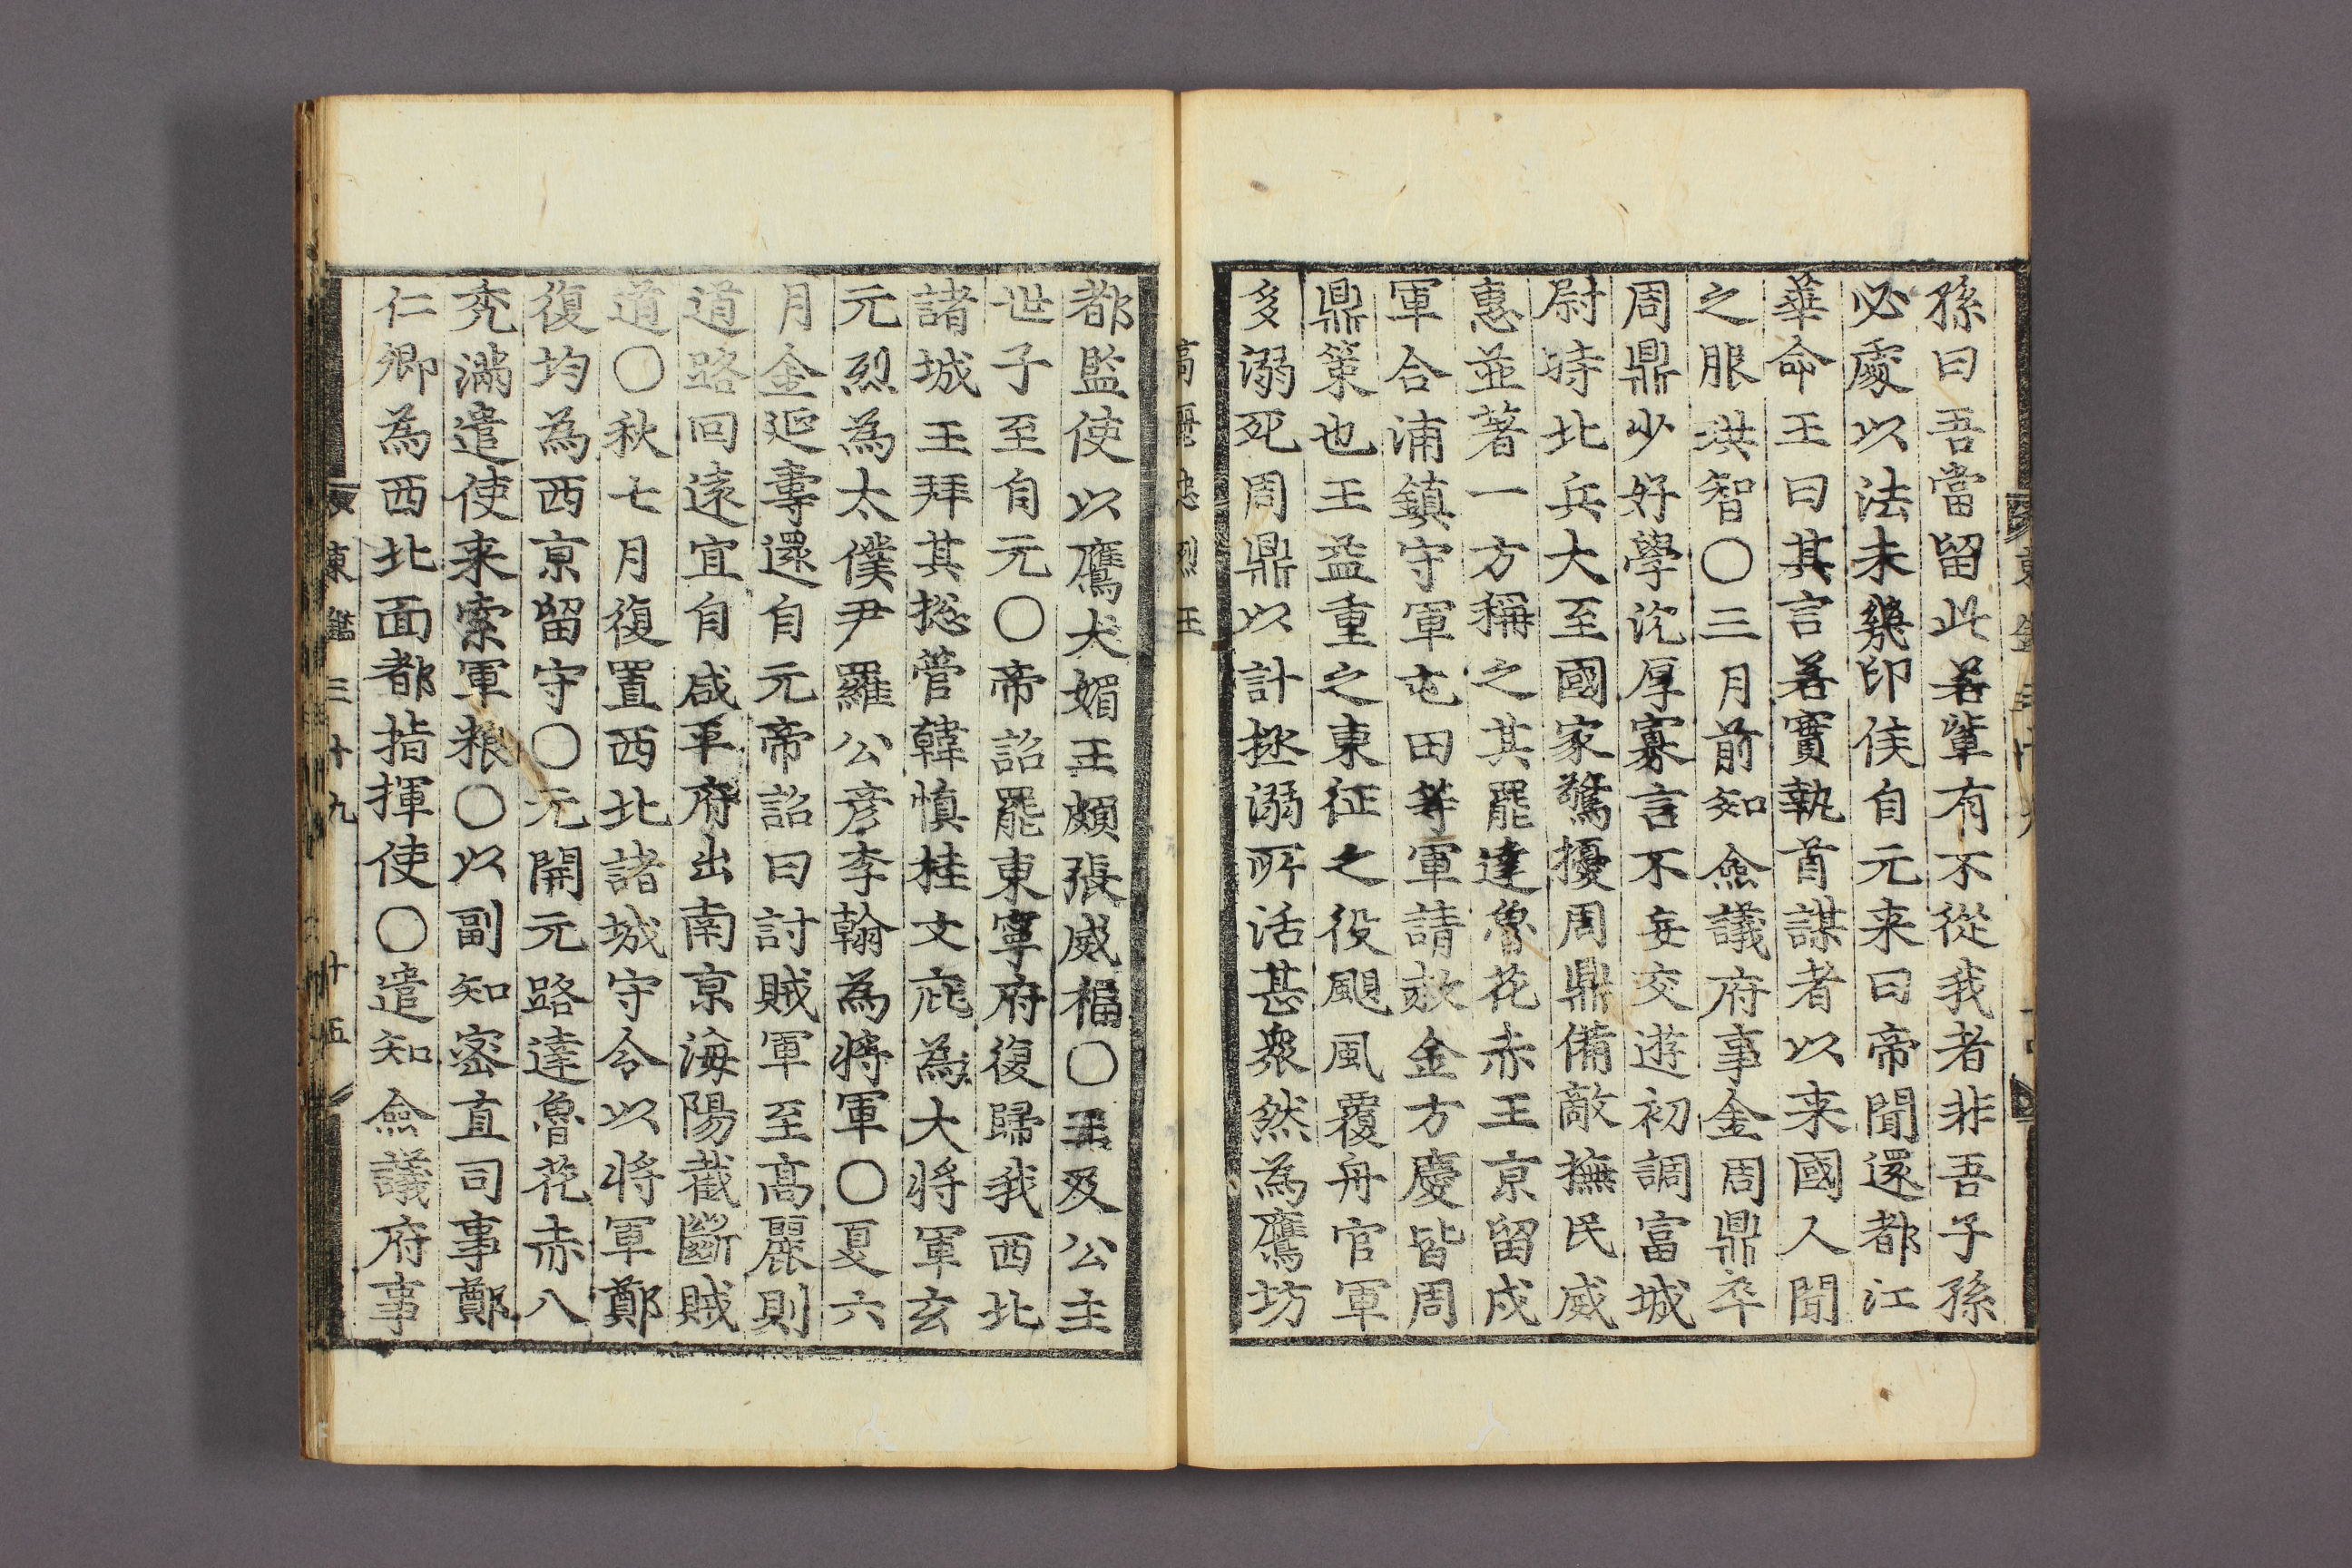 孫曰吾當留此若輩有不從我者非吾子孫
必處以法未幾印侯自元来曰帝聞還都江
華命王曰其言若實執首謀者以来國人聞
之服洪智○三月前知僉議府事金周鼎卒
周鼎少好學沈厚寡言不妄交遊初調富城
尉時北兵大至國家驚擾周鼎備敵撫民威
惠並著一方稱之其罷達魯花赤王京留戍
軍合浦鎮守軍屯田等軍請赦金方慶皆周
鼎策也王益重之東征之役颶風覆舟官軍
多溺死周鼎以計拯溺所活甚衆然為鷹坊
高麗忠烈王
都監使以鷹犬媚王頗張威福○王及公主
世子至自元○帝詔罷東寧府復歸我西北
諸城王拜其摠管韓慎桂文庇為大將軍玄
元烈為太僕尹羅公彦李翰為將軍○夏六
月金延壽還自元帝詔曰討賊軍至高麗則
道路回遠宜自咸平府出南京海陽截斷賊
道○秋七月復置西北諸城守令以将軍鄭
復均為西京留守○元開元路達魯花赤八
禿滿遣使来索軍粮○以副知密直司事鄭
仁卿為西北面都指揮使○遣知僉議府事
東鑑三十九 十五